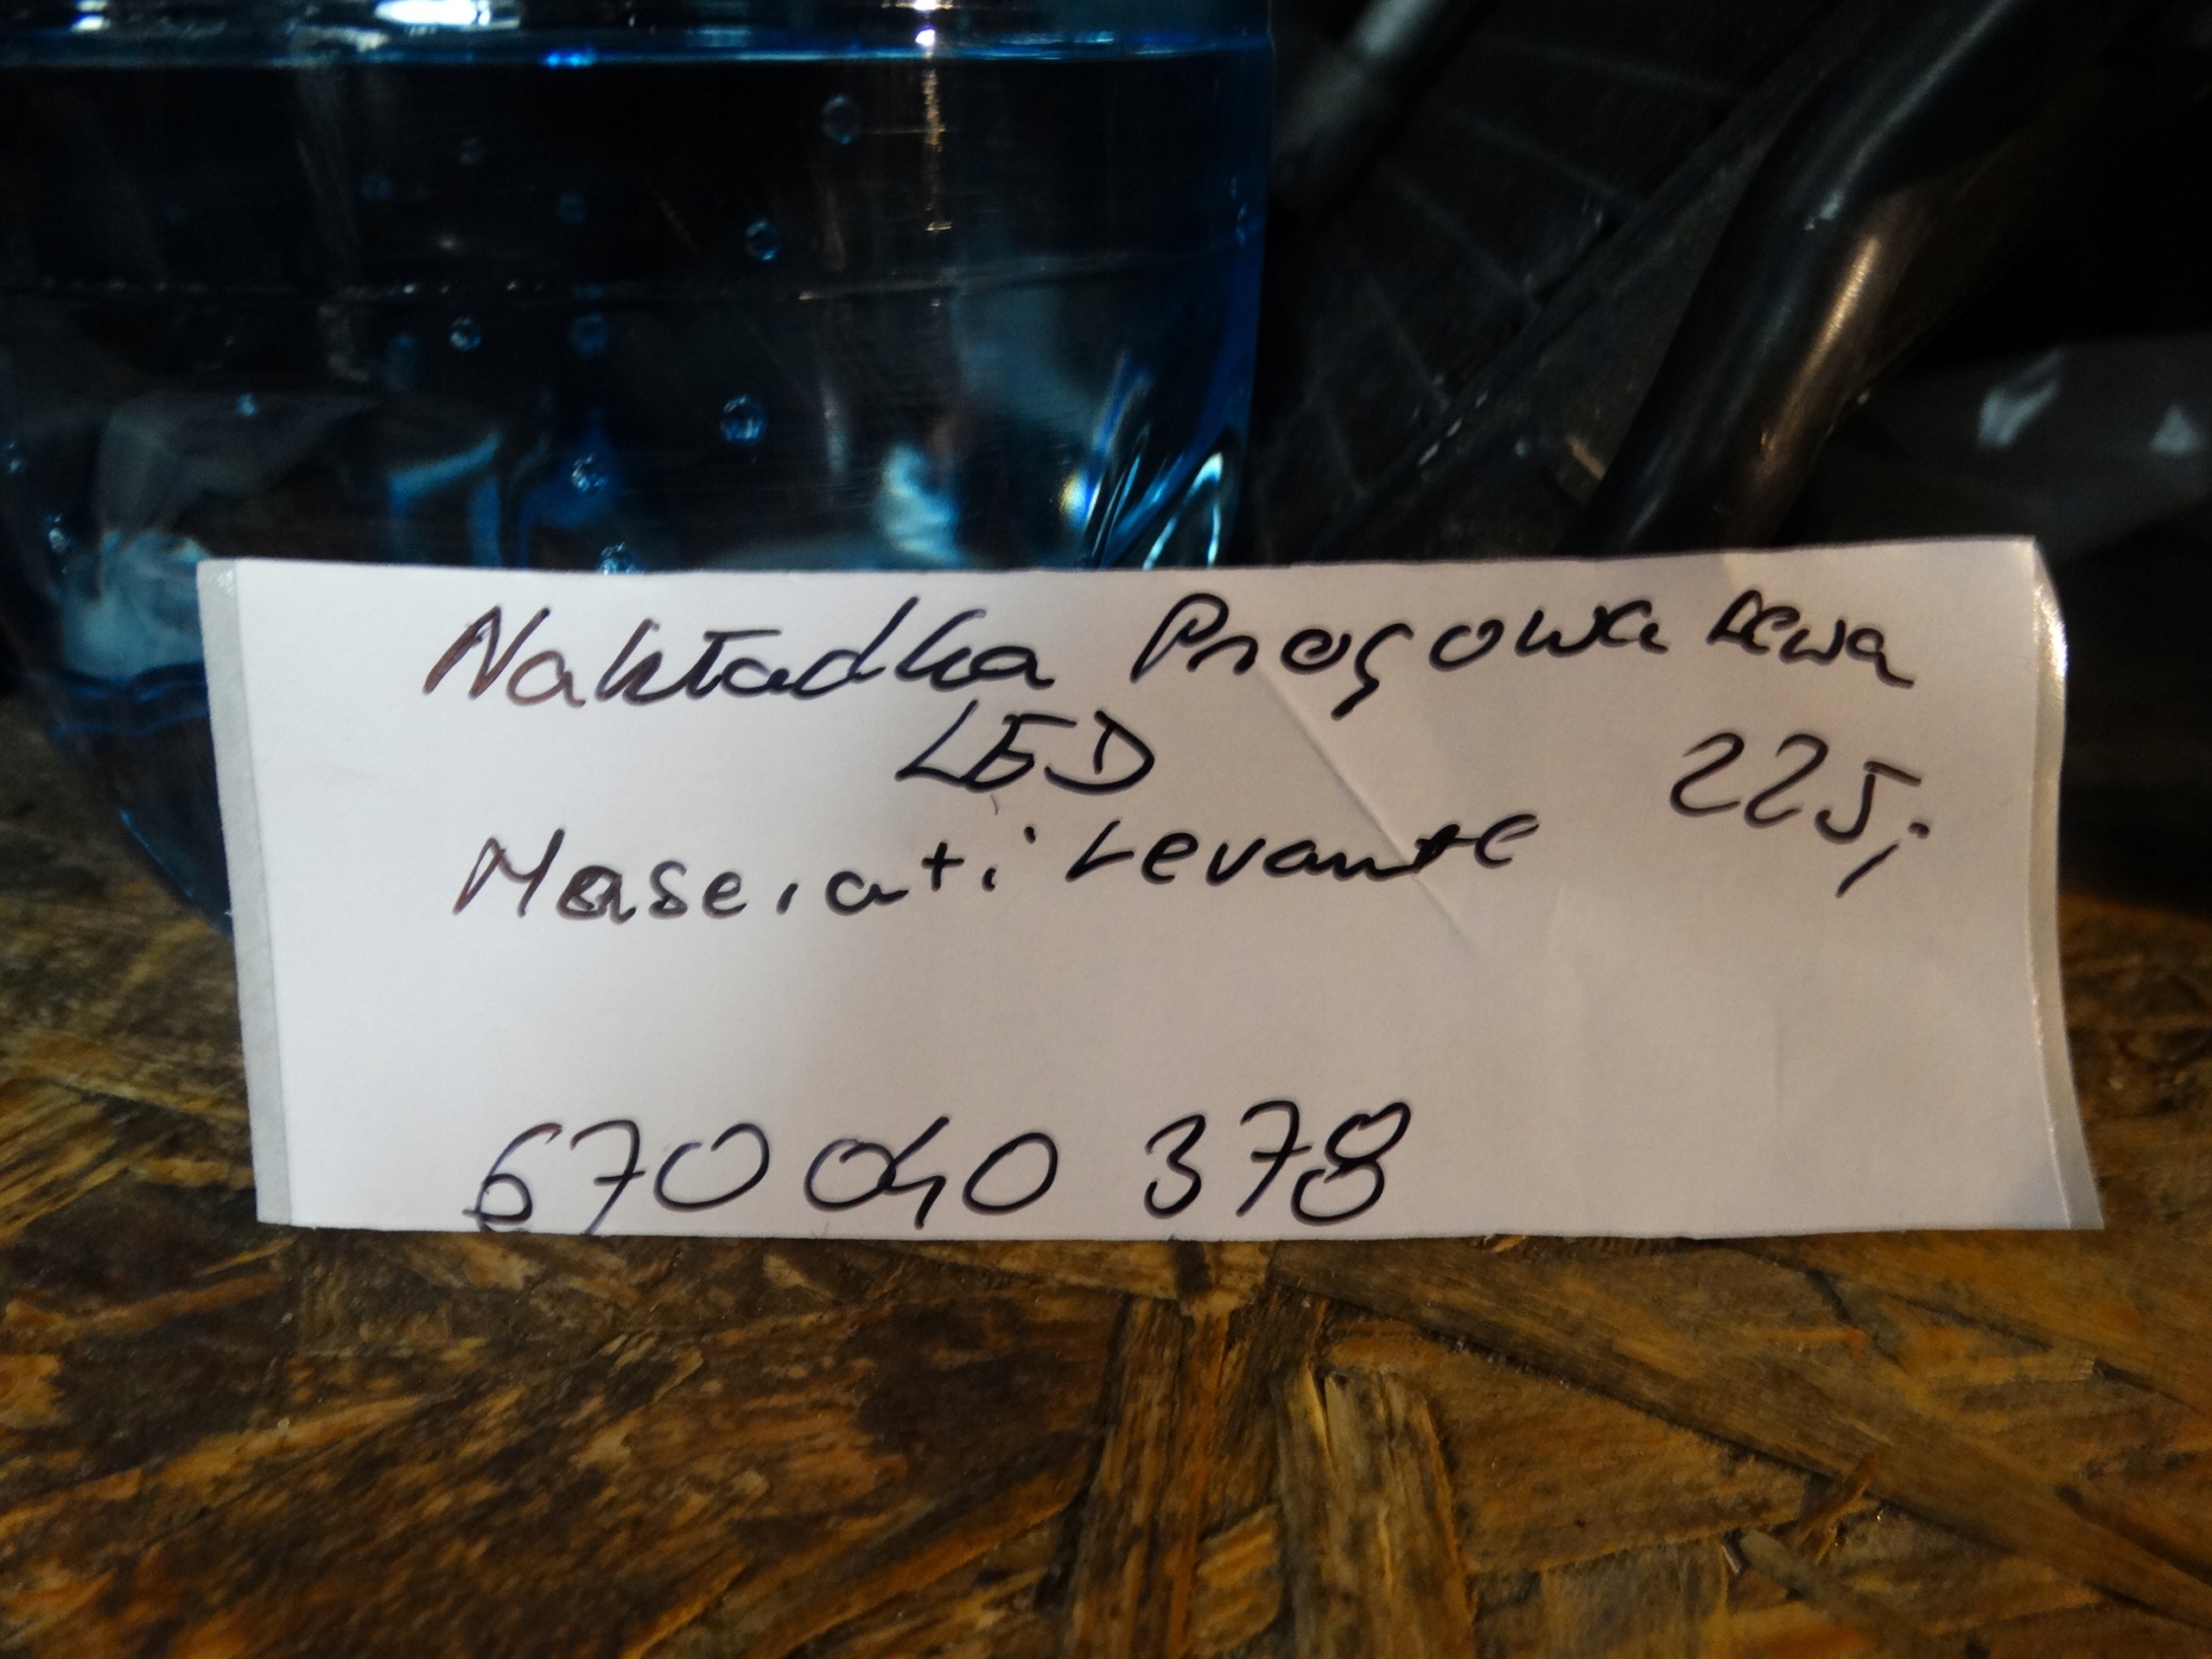 Nakładka Progowa Lewa
LED
225,-
Maserati Levante
670 040 378